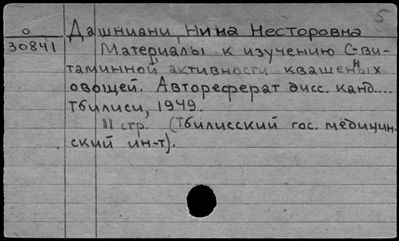 5
о Дашниани, Нина Несторовна
30841 Материалы к изучению С-ви-
таминной активности квашенных
овощей. Автореферат дисс. канд....
Тбилиси, 1949.
11 стр. (Тбилисский гос. медицин-
ский ин-т).